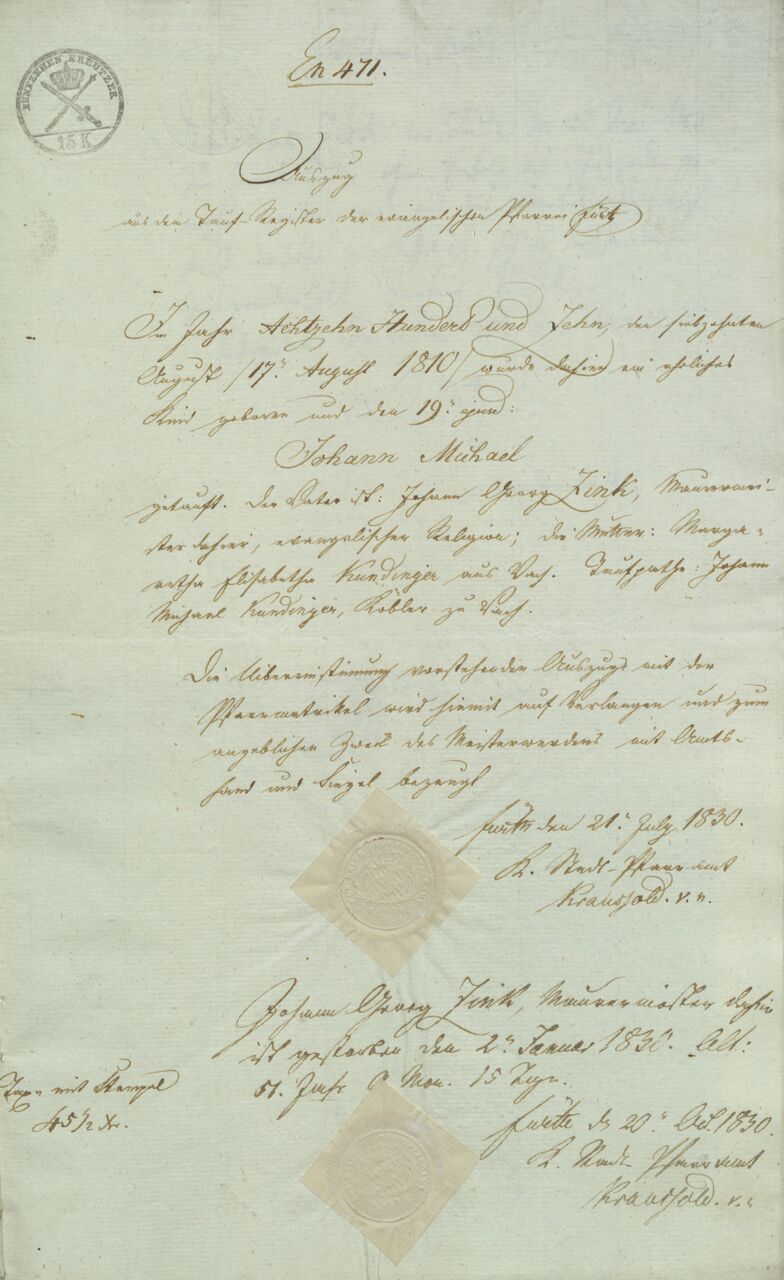 FÜNFZEHEN KREUTZER
15 K
En 471.
Auszug
aus dem Tauf-Register der evangelischen Pfarrei Fürth
Im Jahr Achtzehn Hundert und Zehn, den siebzehnten
August /17n August 1810/ wurde dahier ein eheliches
Kind geboren und den 19n ejusd:
Johann Michael
getauft. Der Vater ist: Johann Georg Zink, Maurermei-
ster dahier, evangelischer Religion; die Mutter: Marga-
retha Elisabetha Kundinger aus Vach. Taufpathe: Johann
Michael Kundinger, Köbler zu Vach.
Die Uebereinstimmung vorstehenden Auszugs mit der
Pfarrmatrikel wird hiemit auf Verlangen und zum
angeblichen Zweck des Meisterwerdens mit Amts-
hand und Siegel bezeugt
Fürth den 21n July 1830.
K. Stadt-Pfarramt
Kraussold. v. n.
Johann Georg Zink, Maurermeister dahier
ist gestorben den 2n Januar 1830. Alt:
51. Jahr Mon. 15 Tage.
Taxe mit Stempel
45 1/2 xr.
Fürth d 20n Oct. 1830.
K. Stadt-Pfarramt
Kraussold. v. n.